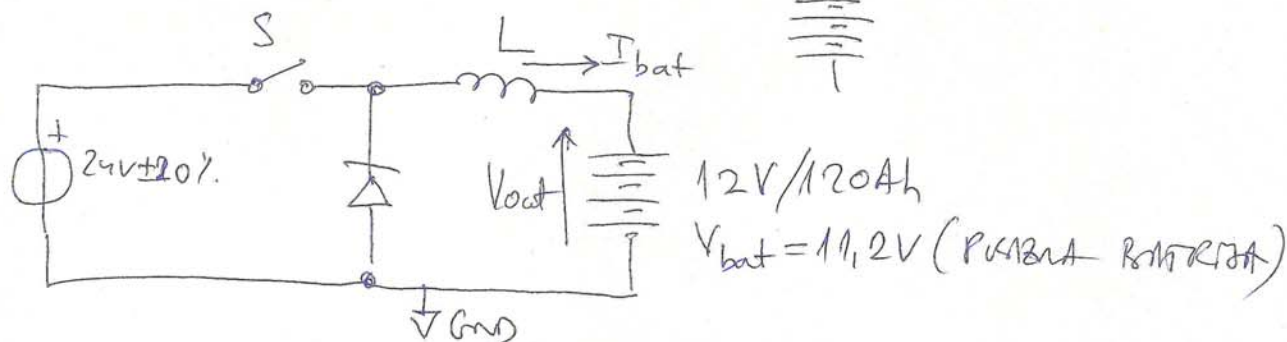 S
L
I bat
+
24V±20%
Vout
12V/120Ah
Vbat = 11,2V (PRAZNA BATERIJA)
GND